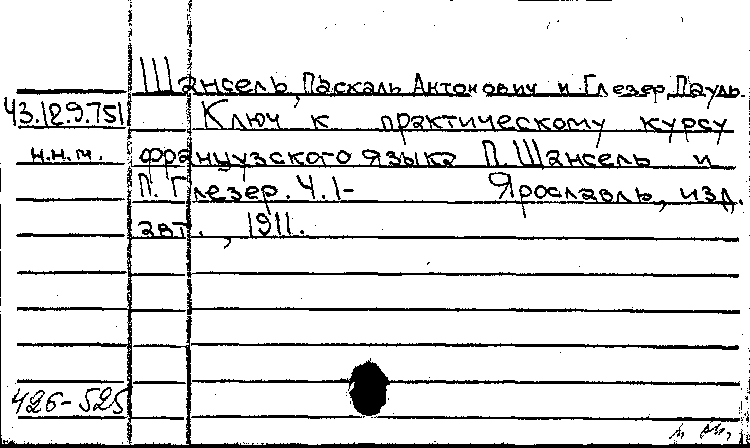 Шансель, Паскаль Антонович и Глезер, Пауль.
43.129.751 Ключ к практическому курсу
н.н.м. французского языка П. Шансель и
П. Глезер. Ч. 1- Ярославль, изд.
авт., 1911.
426-525